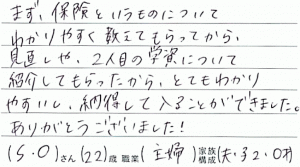 まず、保険というものについて
わかりやすく教えてもらってから、
見直しや、2人目の学資について
紹介してもらったから、とてもわかり
やすいし、納得して入ることができました。
ありがとうございました!
(S.O)さん(22)歳 職業(主婦)家族構成(夫・子2・0才)